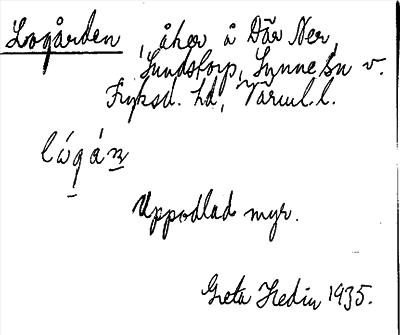 Logården, åker å Där Ner,
Lunstorp, Sunne sn v.
Fryksd. hd, Värml. l.
lógá​n
Uppodlad myr.
Greta Hedin 1935.